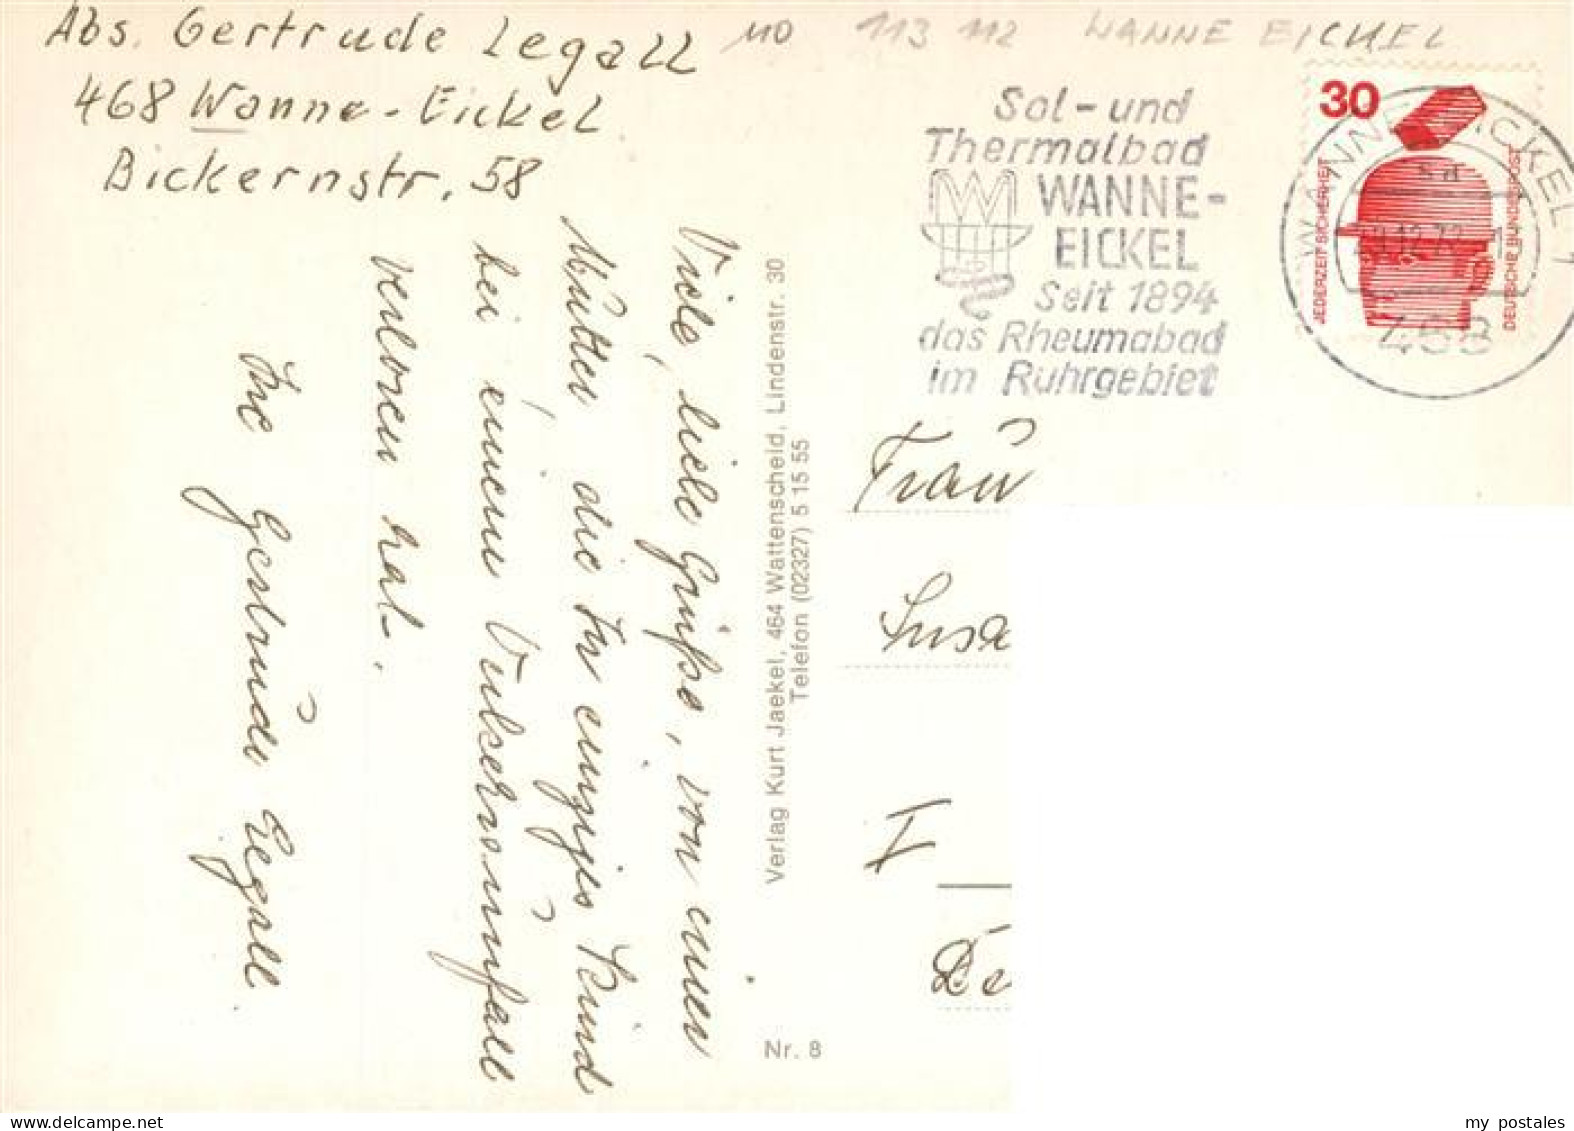 Abs. Gertrude Legall
468 Wanne-Eickel
Bickernstr. 58
110 113 112 WANNE EICKEL
Sol- und
Thermalbad
WANNE-
EICKEL
Seit 1894
das Rheumabad
im Ruhrgebiet
30
JEDERZEIT SICHERHEIT
DEUTSCHE BUNDESPOST
WANNE-EICKEL 1
sd
12.72
468
Viele, liebe Grüße, von einer
Mutter die Ihr einziges Kind
bei einem Verkehrsunfall
verloren hat.
Ihre Gertrude Legall
Verlag Kurt Jaekel, 464 Wattenscheid, Lindenstr. 30
Telefon (02327) 5 15 55
Nr. 8
Frau
Susa
I
Be
my postales